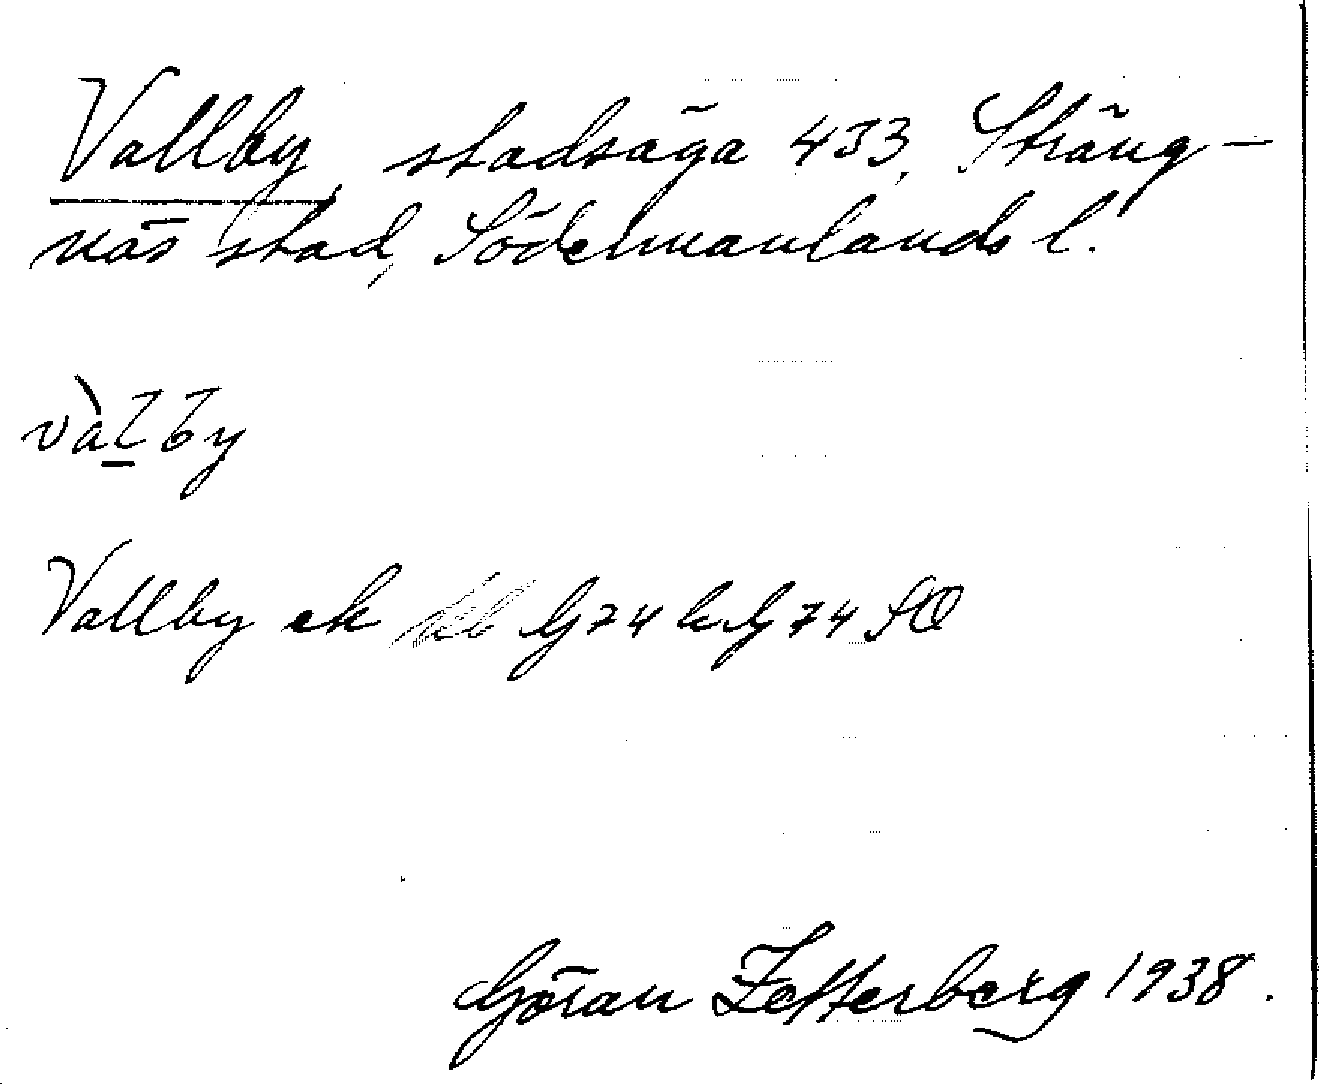 Vallby, stadsäga 433, Sträng-
näs stad, Södermanlands l.
vàlby
Vallby ek G 74 G 74 SO
Göran Zetterberg 1938.